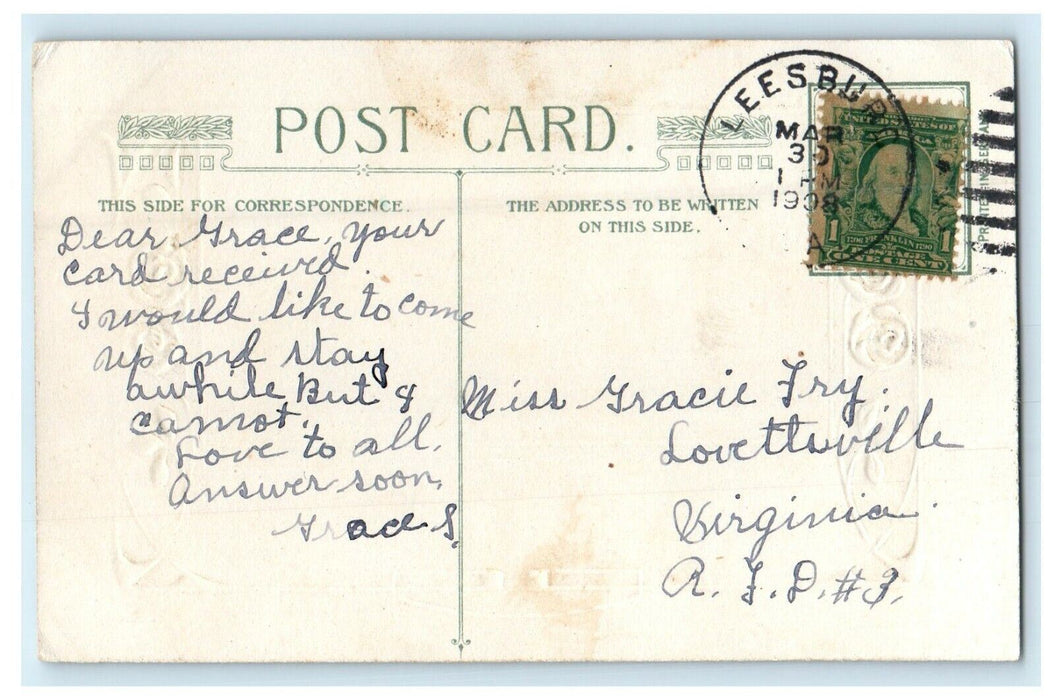 POST CARD.
THIS SIDE FOR CORRESPONDENCE.
THE ADDRESS TO BE WRITTEN
ON THIS SIDE.
LEESBURG
MAR
30
1908
1 FRANKLIN 1
POSTAGE
ONE CENT
Dear Grace, your
card received.
I would like to come
up and stay
awhile But I
cannot.
Love to all.
Answer soon.
Grace S.
Miss Gracie Fry.
Lovettsville
Virginia.
R. F. D. #3.